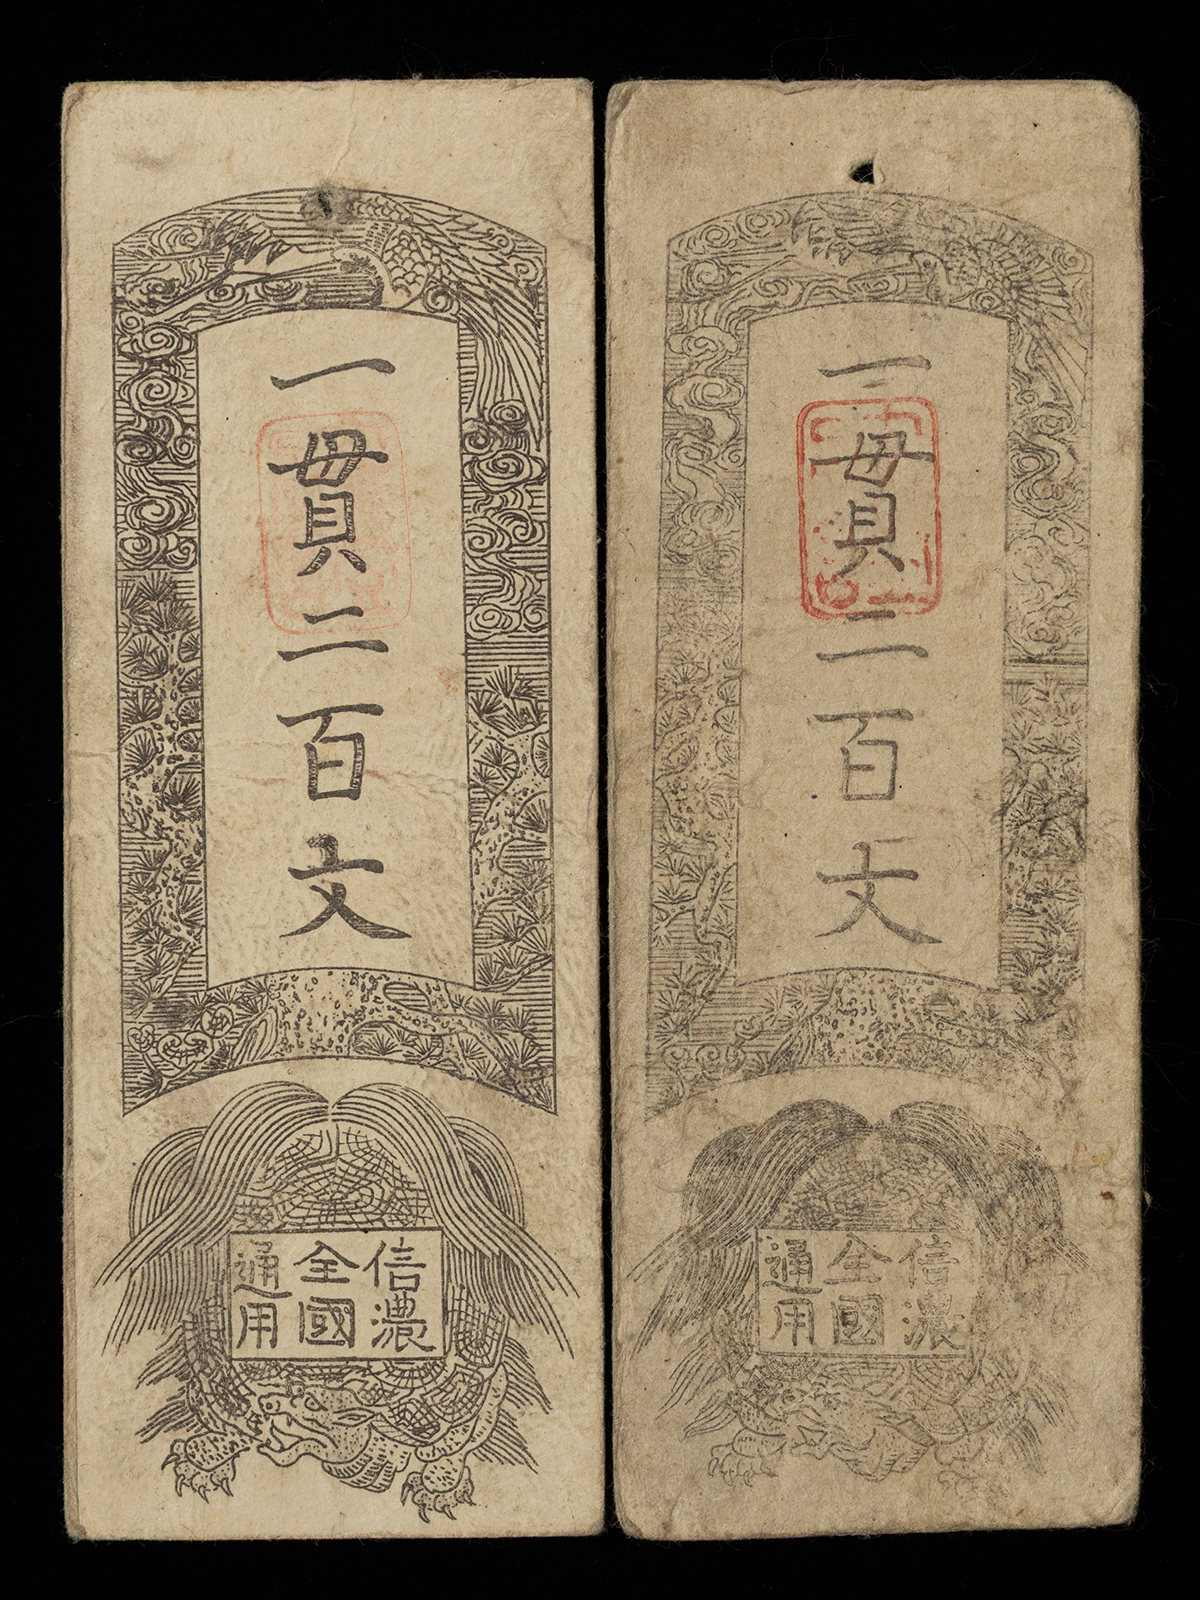 一貫二百文
信濃
全國
通用
一貫二百文
信濃
全國
通用